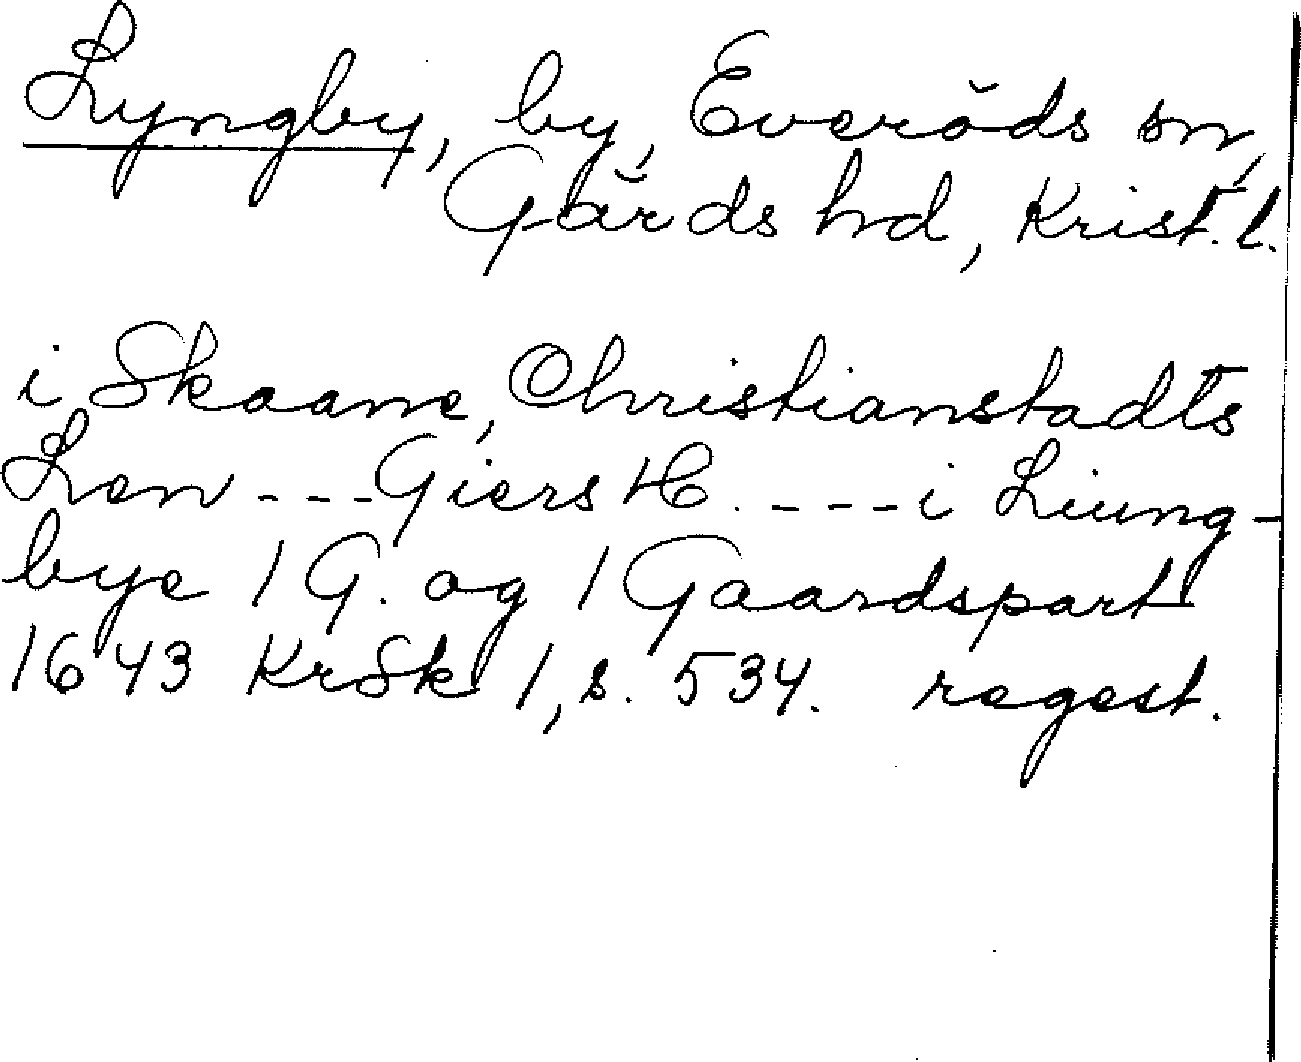 Lyngby, by, Everöds sn,
Gärds hd, Krist. l.
i Skaane, Christianstadts
Len --- Giers H. ---- i Liung-
bye 1 G. og 1 Gaardspart
1643 KrSk 1, s. 534. regest.